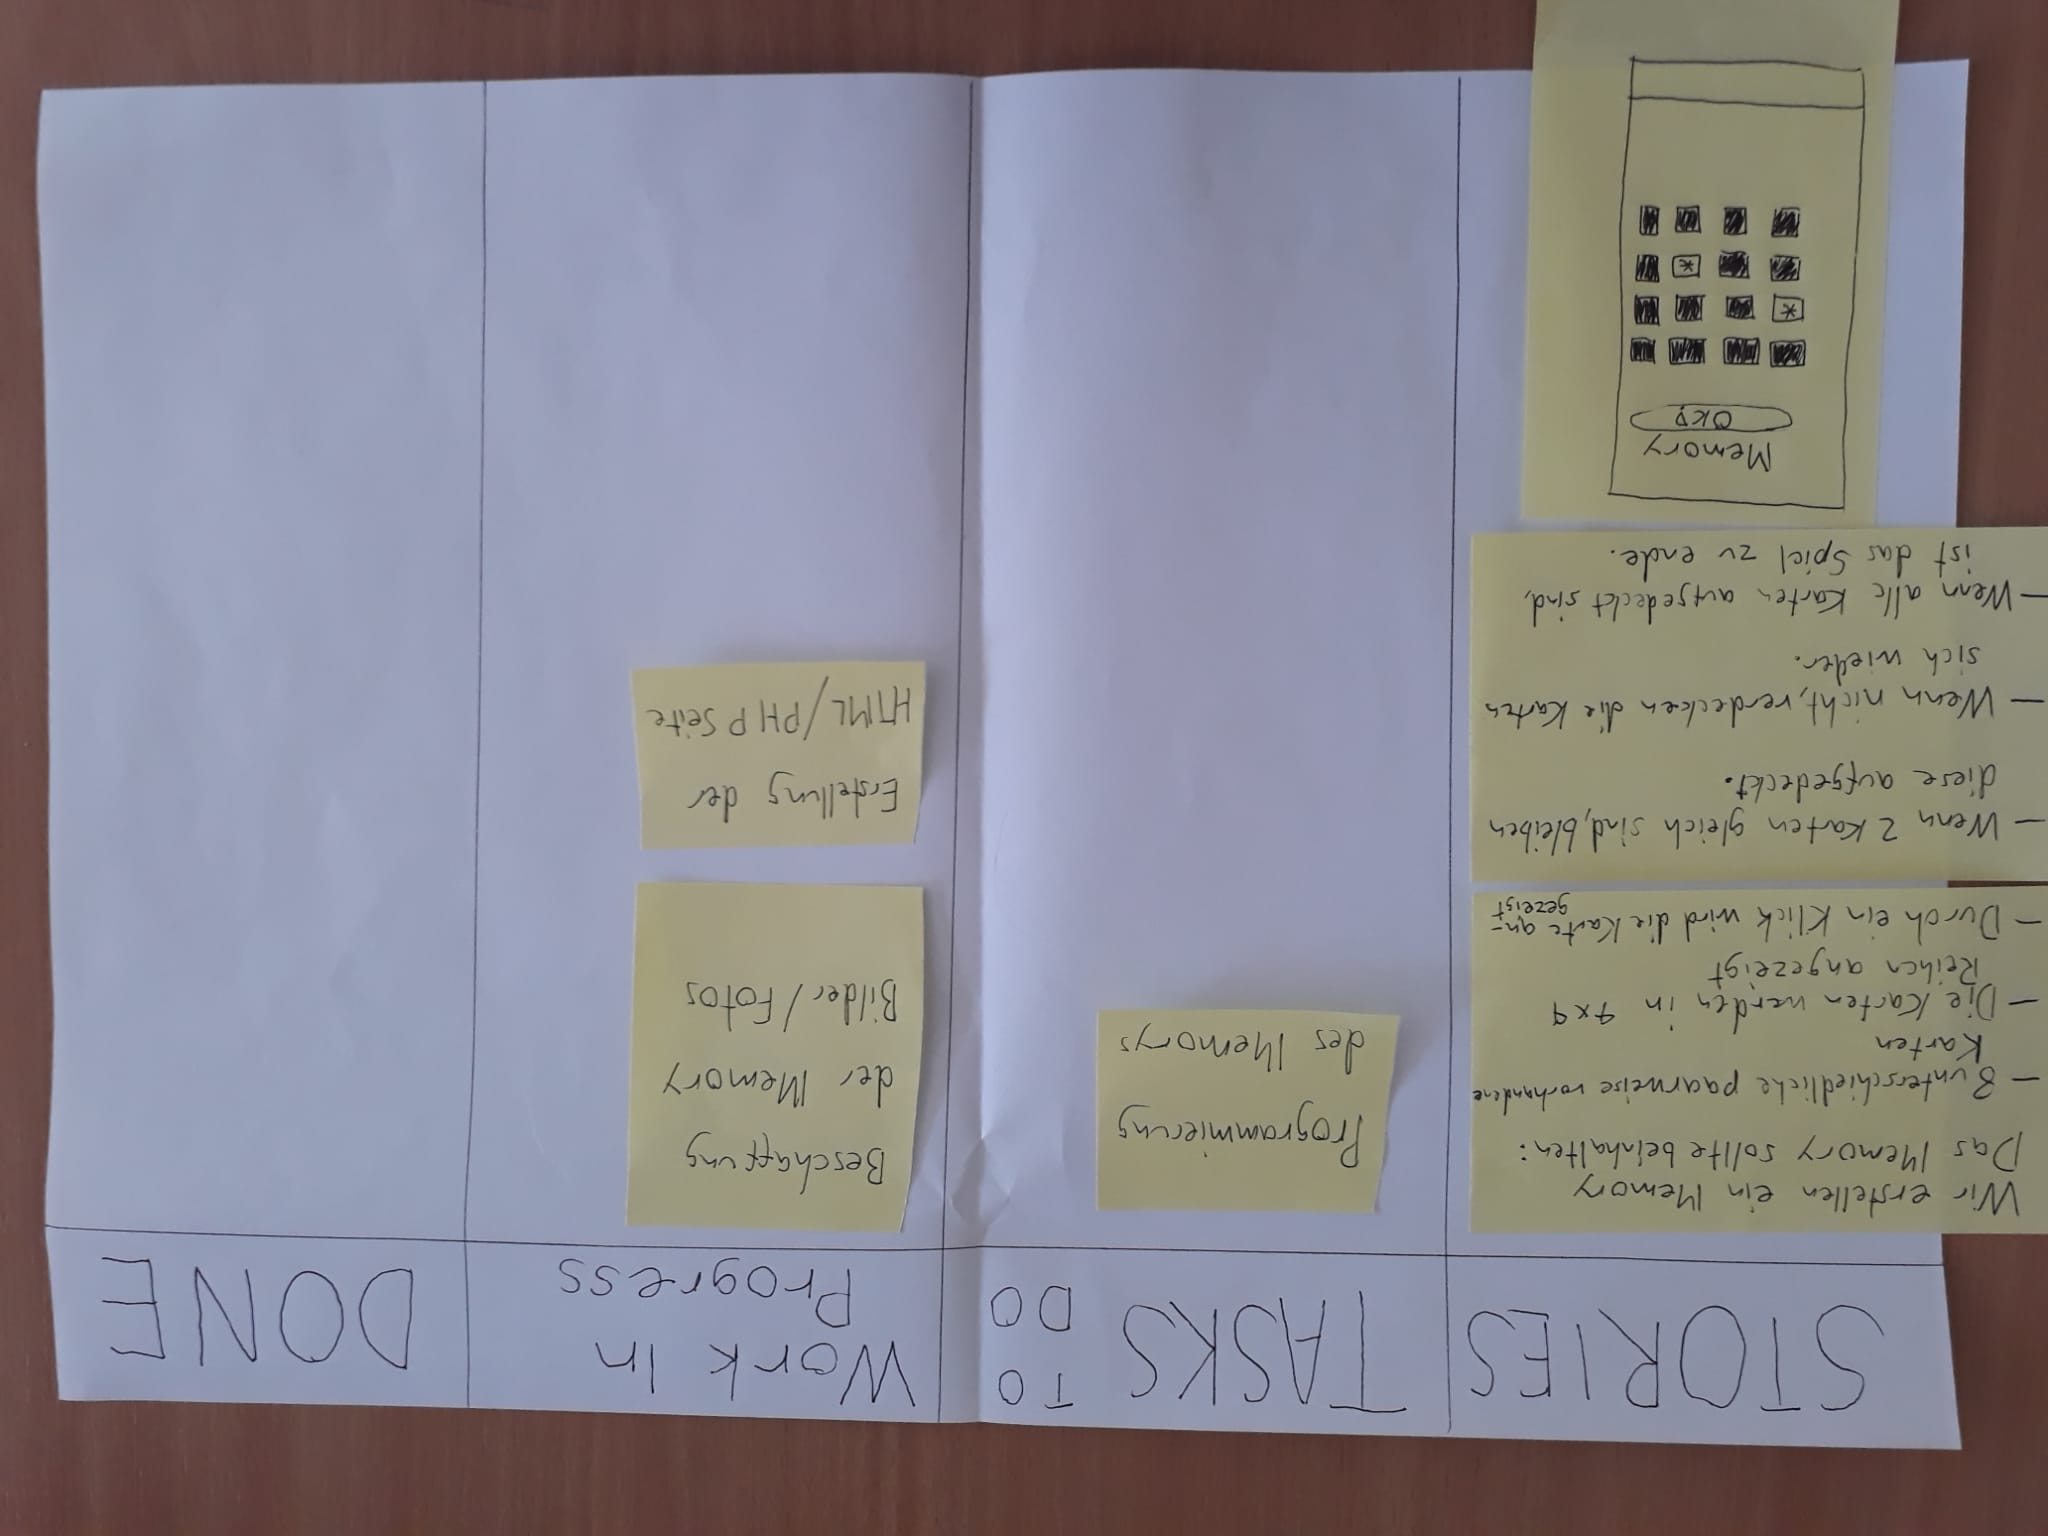 STORIES
TASKS TO DO
Work In
Progress
DONE
Wir erstellen ein Memory
Das Memory sollte beinhalten:
- 8 unterschiedliche paarweise vorhandene
Karten
- Die Karten werden in 4x4
Reihen angezeigt
- Durch ein Klick wird die Karte an-
gezeigt
- Wenn 2 Karten gleich sind, bleiben
diese aufgedeckt.
- Wenn nicht, verdecken die Karten
sich wieder.
- Wenn alle Karten aufgedeckt sind,
ist das Spiel zu ende.
Memory
OK!
Programmierung
des Memorys
Beschaffung
der Memory
Bilder/Fotos
Erstellung der
HTML/PHP Seite